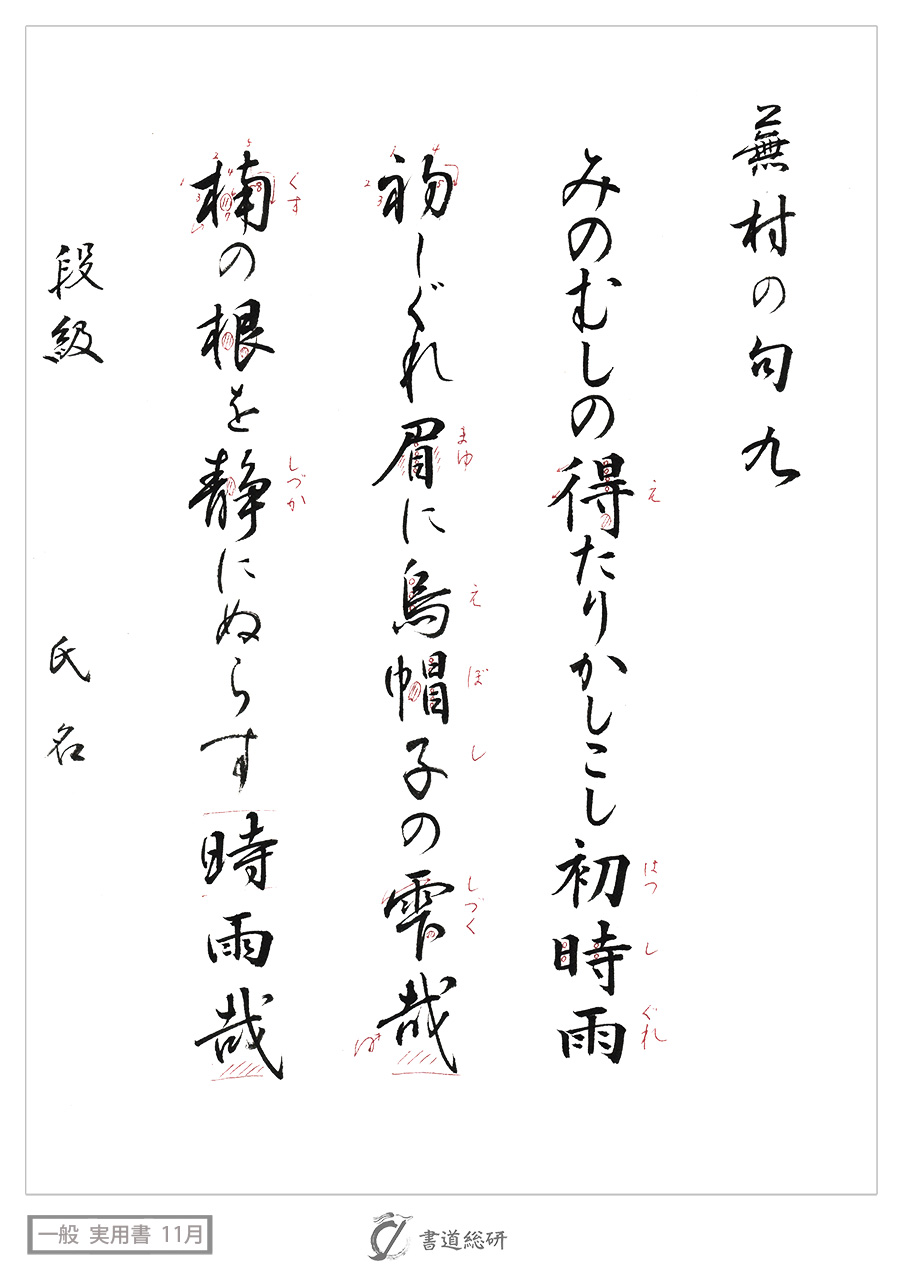 蕪村の句 九
みのむしの得たりかしこし初時雨
え
はつ
し
ぐれ
初しぐれ眉に烏帽子の雫哉
まゆ
え
ぼ
し
しづく
楠の根を静にぬらす時雨哉
くす
しづか
段級 氏名
一般 実用書 11月
書道総研